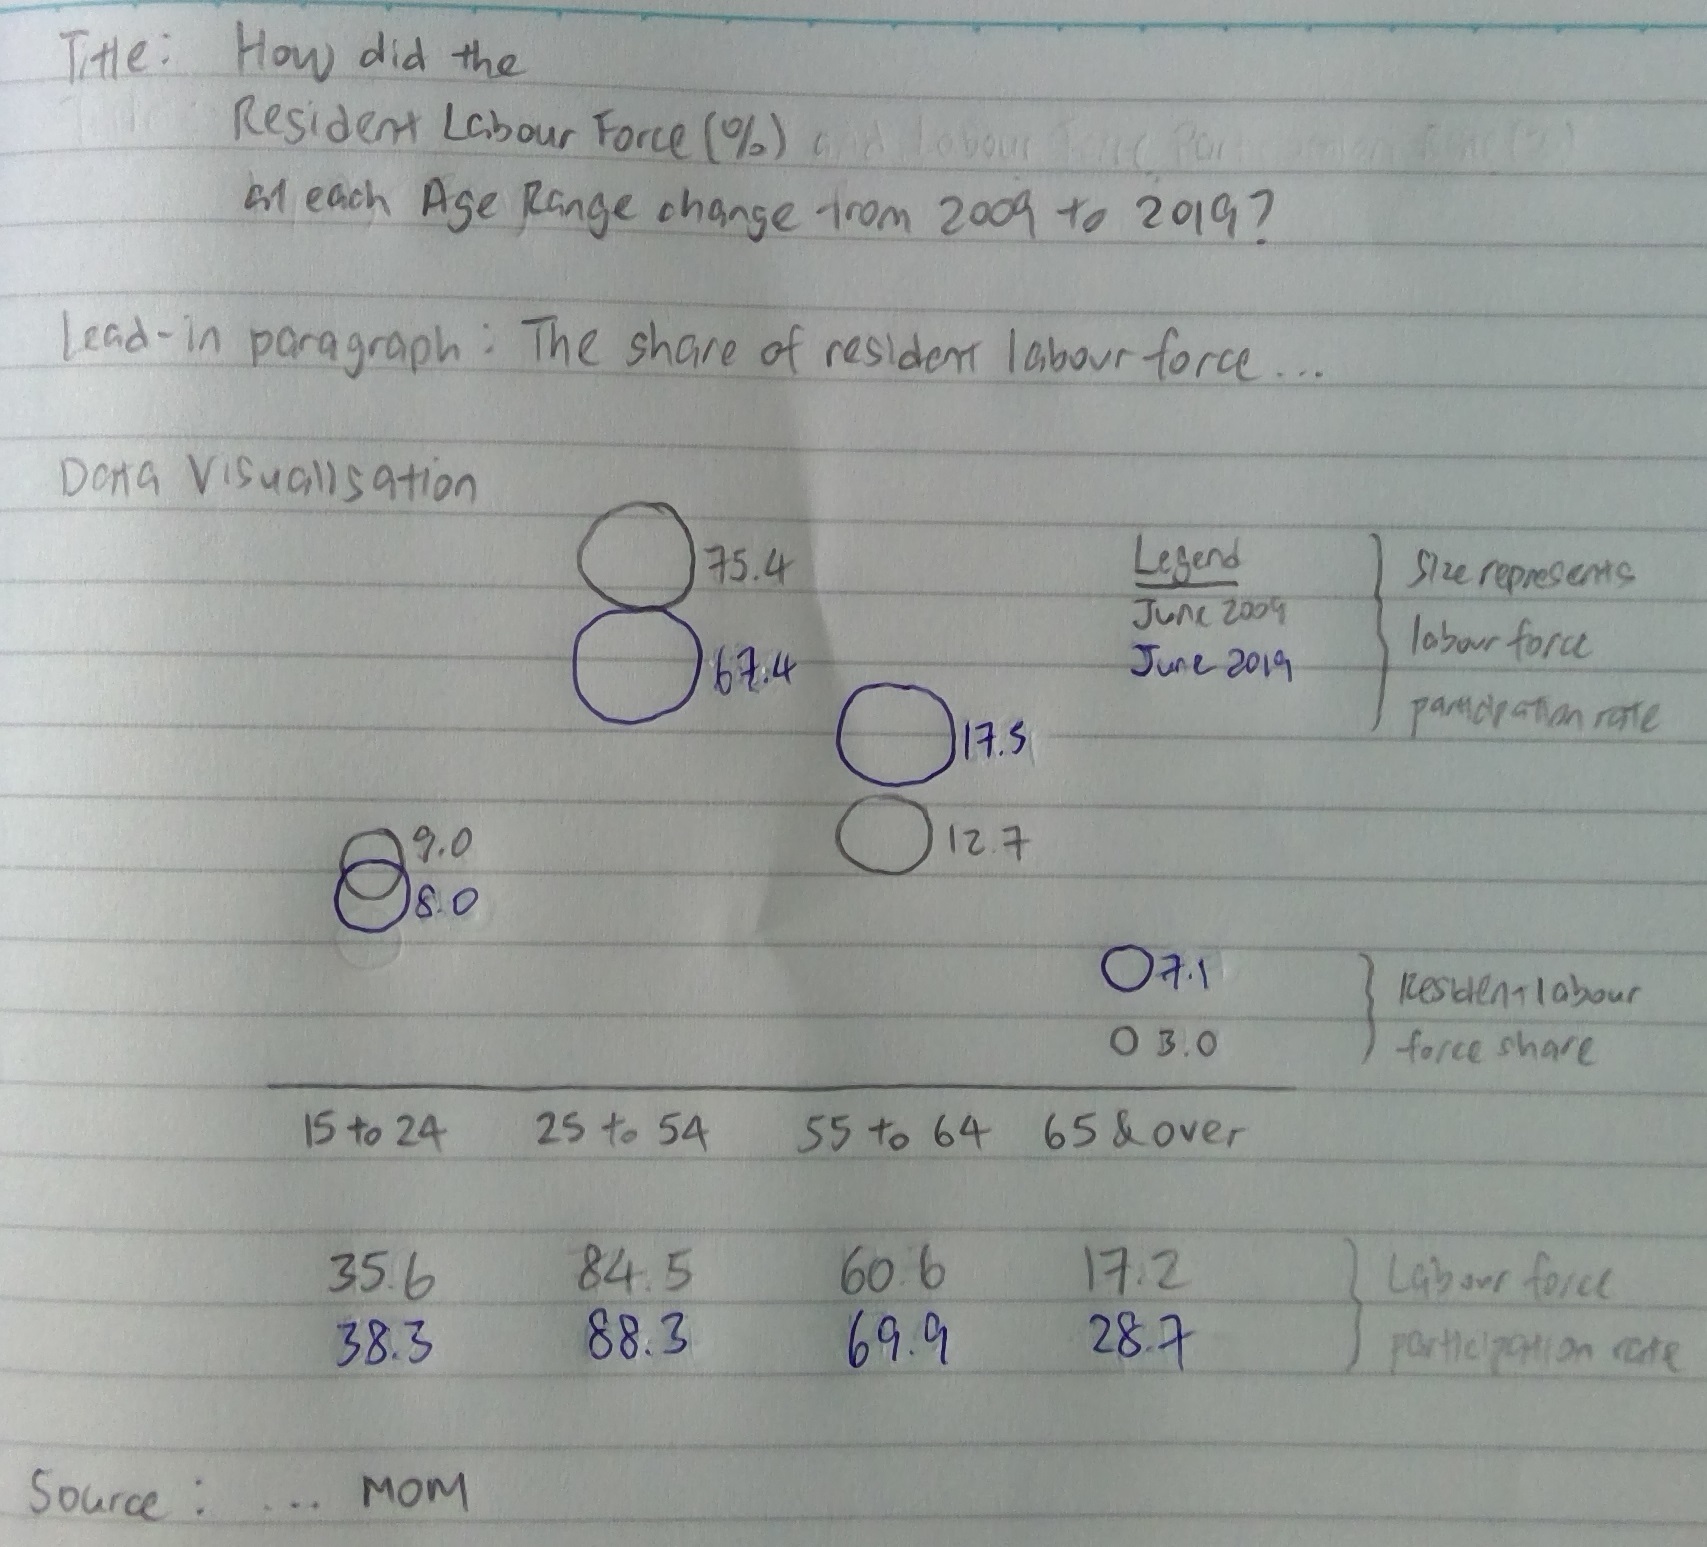 Title: How did the
Resident Labour Force (%)
at each Age Range change from 2009 to 2019?
Lead-in paragraph: The share of resident labour force...
Data Visualisation
75.4
67.4
Legend
June 2009
June 2019
Size represents
labour force
participation rate
17.5
12.7
9.0
8.0
7.1
3.0
Resident labour
force share
15 to 24 25 to 54 55 to 64 65 & over
35.6 84.5 60.6 17.2
38.3 88.3 69.9 28.7
Labour force
participation rate
Source: ... MOM